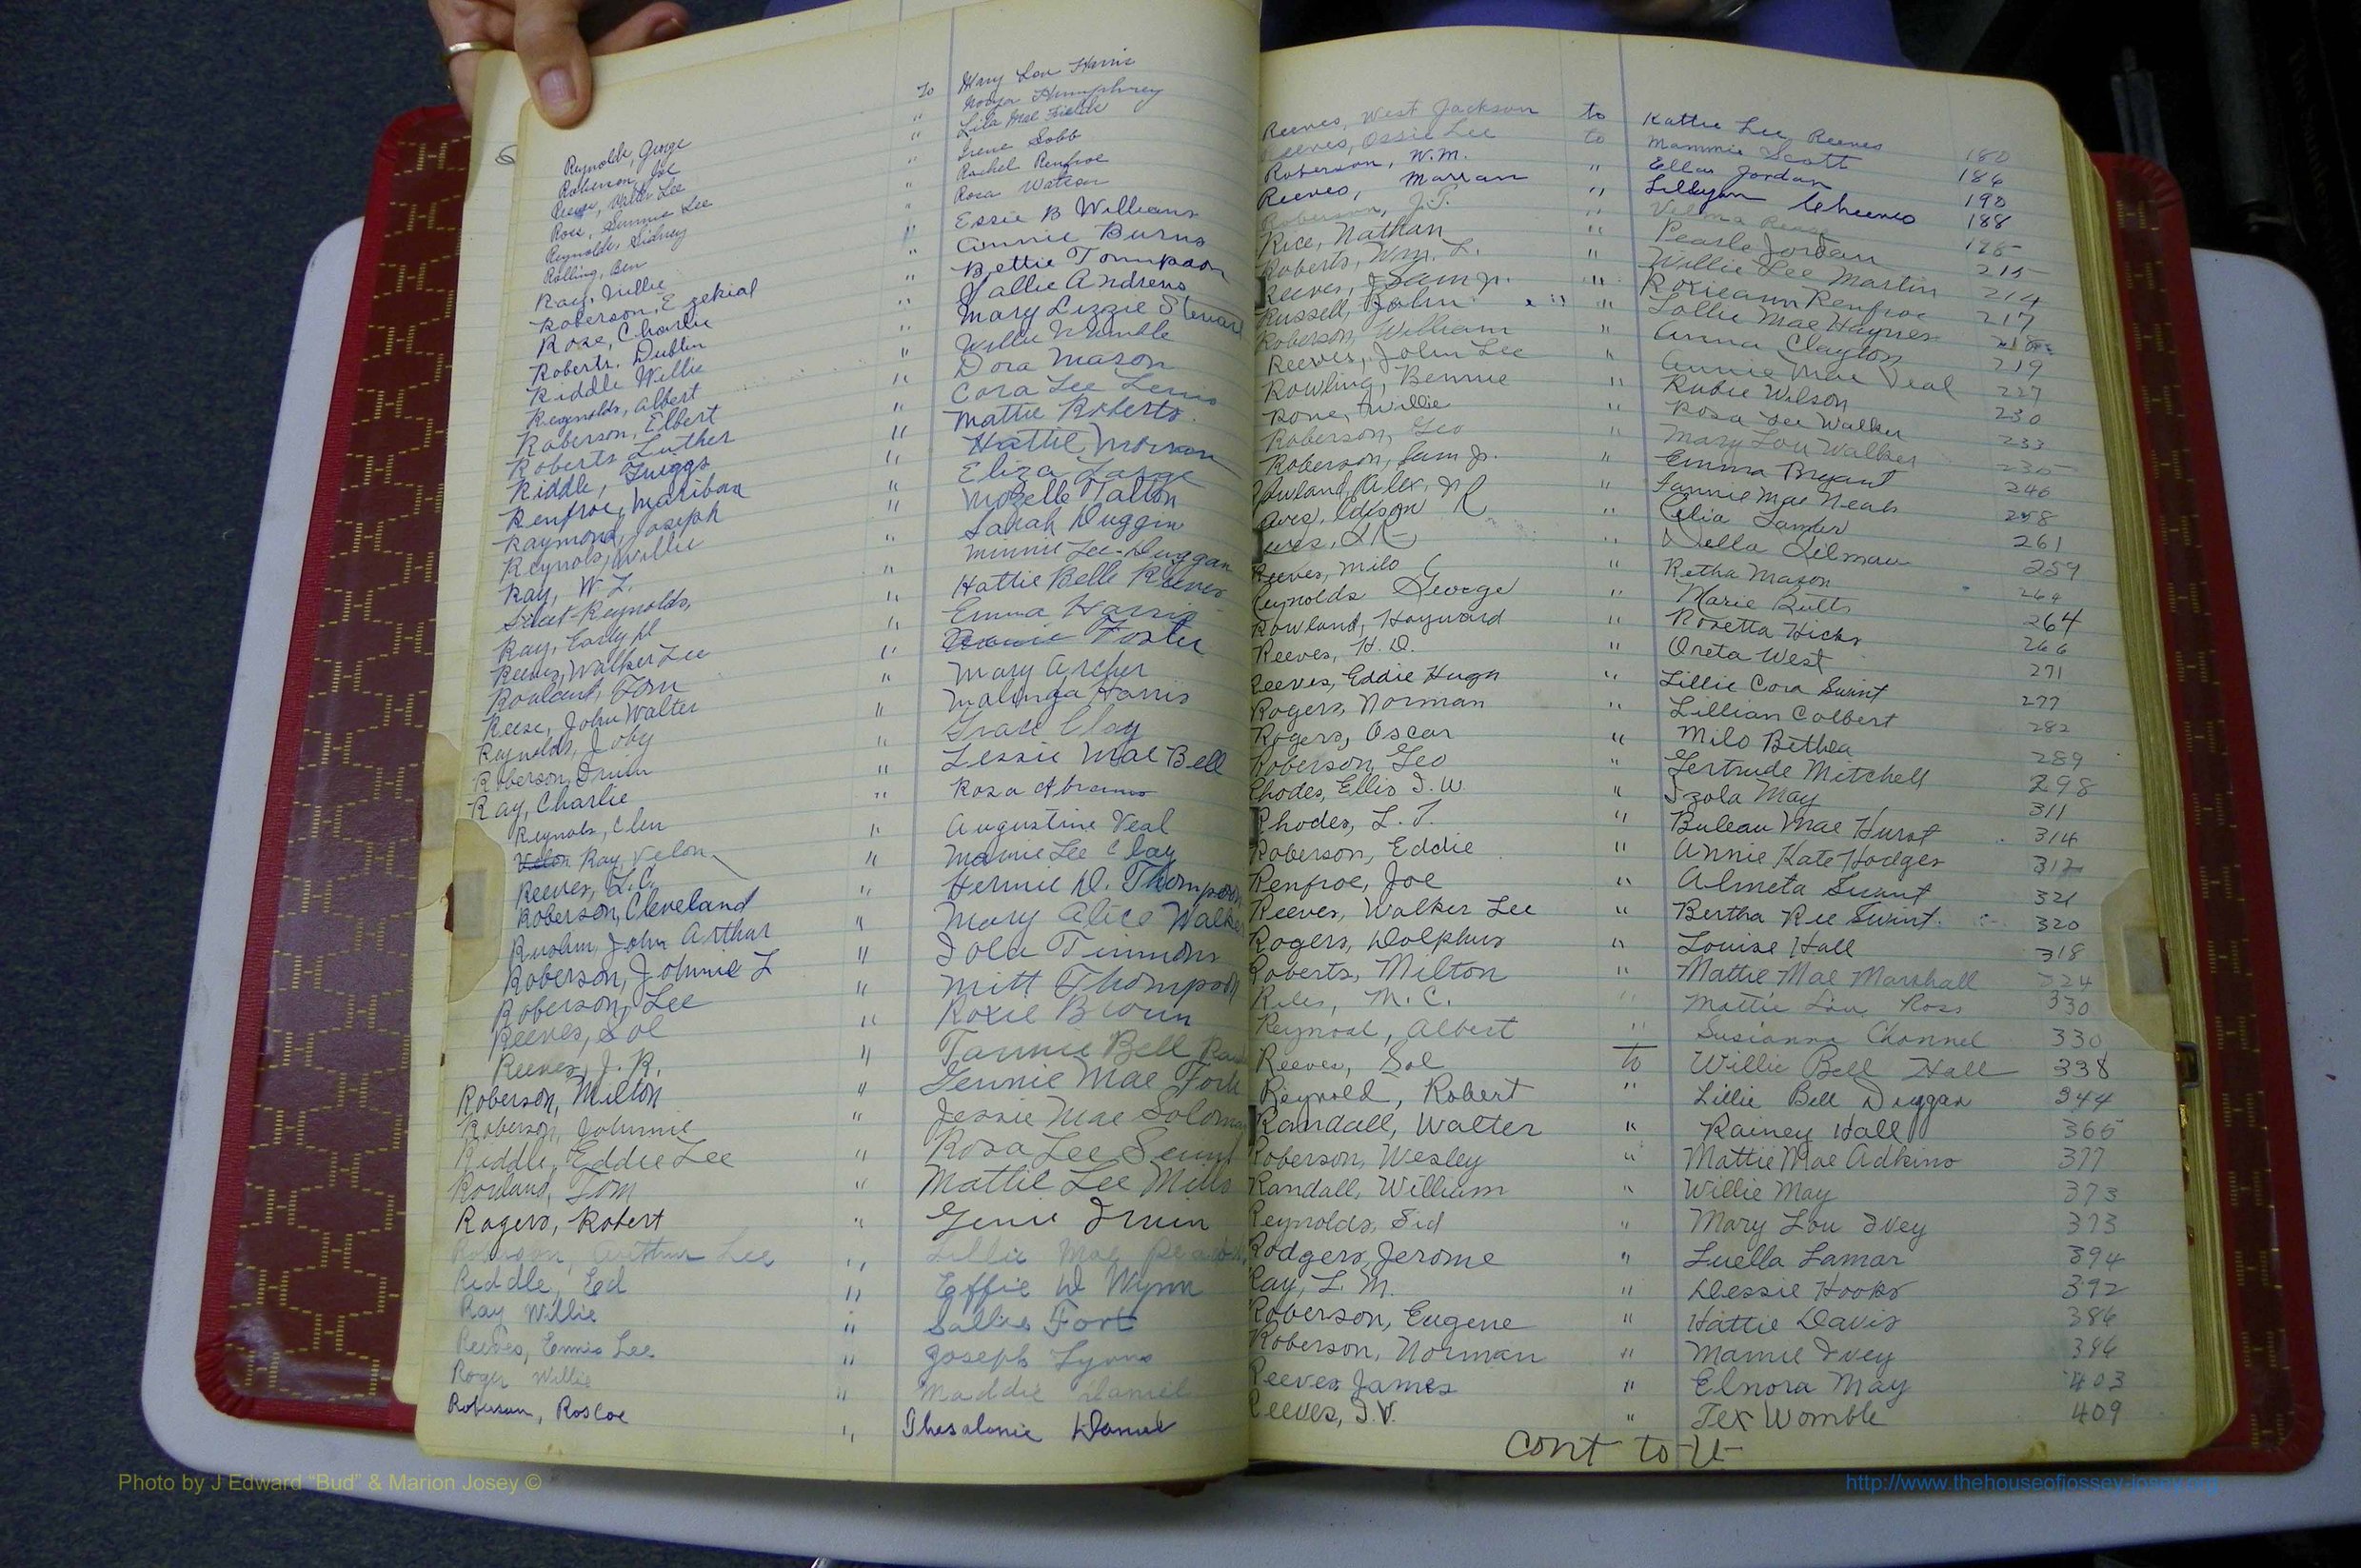 Reynolds, George to Mary Lou Harris
Roberson, Joe " Humphrey
Reese, Walter Lee " Lila Mae Fields
Rose, Sammie Lee " Irene Cobb
Reynolds, Sidney " Rachel Renfroe
Rolling, Ben " Rosa Watson
Ray, Willie " Essie B Williams
Roberson, Ezekial " Annie Burns
Rose, Charlie " Bettie Tompson
Roberts, Dublin " Sallie Andrews
Riddle Willie " Mary Lizzie Stewart
Reynolds, Albert " Willie Womble
Roberson, Elbert " Dora Mason
Roberts Luther " Cora Lee Lewis
Riddle, Griggs " Mattie Roberts
Renfroe, " Hattie Morran
Raymond, Joseph " Eliza Large
Reynols, Willie " Mozelle Talton
Ray, W. L. " Sarah Duggin
Reynolds, " Minnie Lee Duggan
Ray, Early " Hattie Belle Reeves
Reeves, Walker Lee " Emma Harris
Rowland, Tom " Foster
Reese, John Walter " Mary Archer
Reynolds, Joby " Malinga Harris
Roberson, " Grace Clay
Ray, Charlie " Lessie Mae Bell
Reynols, Clen " Rosa Abrams
Ray, Velon " Augustine Veal
Reeves, L.C. " Mamie Lee Clay
Roberson, Cleveland " Hermie D. Thompson
John Arthur " Mary Alice Walker
Roberson, Johnnie L " Iola Timmons
Roberson, Lee " Mitt Thompson
Reeves, Sol " Roxie Brown
Reeves, J. R. " Bell
Roberson, Milton " Jennie Mae
Roberson, Johnnie " Jessie Mae Soloman
Riddle, Eddie Lee " Rosa Lee
Rowland, Tom " Mattie Lee Mills
Rogers, Robert " Genie Irwin
Roberson, Arthur Lee " Lillie Mae
Riddle, Ed " Effie W Wynn
Ray Willie " Sallie Fort
Reeves, Ennis Lee " Joseph Lyons
Roger Willie " Maddie Daniel
Roberson, Roscoe " Thesalonie Daniel
Reeves, West Jackson to Kattie Lee Reeves 180
Reeves, Ossie Lee to Mammie Scott 186
Roberson, W.M. " Ella Jordan 190
Reeves, Marran " Lillyan 188
Roberson, J.T. " Velma 195
Rice, Nathan " Pearle Jordan 215
Roberts, Wm. L. " Willie Lee Martin 214
Reeves, Sam Jr. " Roxieann Renfroe 217
Russell, John " Lollie Mae Haynes
Roberson, William " Anna Clayton 219
Reeves, John Lee " Annie Mae Veal 227
Rowling, Bennie " Rubie Wilson 230
Rone, Willie " Rosa Lee Walker 233
Roberson, Geo " Mary Lou Walker 235
Roberson, Sam Jr. " Emma Bryant 246
Rowland, Alex, Jr " Fannie Mae Neals 258
Edison " Celia Lamder 261
" Della Gilman 259
Reeves, Milo " Retha Mason 264
Reynolds George " Marie Butts 264
Rowland, Hayward " Rosetta Hicks 266
Reeves, H. D. " Oreta West 271
Reeves, Eddie Hugh " Lillie Cora Swint 277
Rogers, Norman " Lillian Colbert 282
Rogers, Oscar " Milo Bethea 289
Roberson, Geo " Gertrude Mitchell 298
Rhodes, Ellis I. W. " Izola May 311
Rhodes, L. T. " Buleau Mae Hurst 314
Roberson, Eddie " Annie Kate Hodges 312
Renfroe, Joe " Almeta Swint 321
Reeves, Walker Lee " Bertha Ree Swint 320
Rogers, Dolphus " Louise Hall 318
Roberts, Milton " Mattie Mae Marshall 324
Riles, M. C. " Mattie Lou Ross 330
Reynold, Albert " Susianna Channel 330
Reeves, Sol to Willie Bell Hall 338
Reynold, Robert " Lillie Bell Duggan 344
Randall, Walter " Rainey Hall 365
Roberson, Wesley " Mattie Mae Adkins 377
Randall, William " Willie May 373
Reynolds, Sid " Mary Lou Ivey 373
Rodgers, Jerome " Luella Lamar 394
Ray, L. M. " Dessie Hooks 392
Roberson, Eugene " Hattie Davis 386
Roberson, Norman " Mamie Ivey 386
Reeves James " Elnora May 403
Reeves, I. V. " Tex Womble 409
Cont to U
Photo by J Edward “Bud” & Marion Josey ©
http://www.thehouseofjossey-josey.org